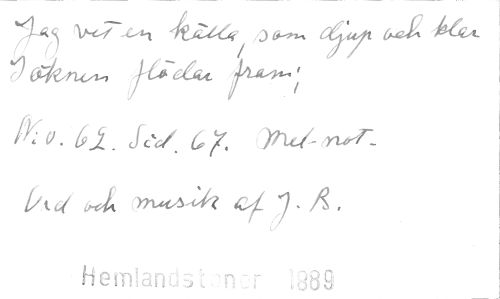 Jag vet en källa, som djup och klar
I öknen flödar fram;
N:o. 62. Sid. 67. Mel-not-
Ord och musik af J. B.
Hemlandstoner 1889